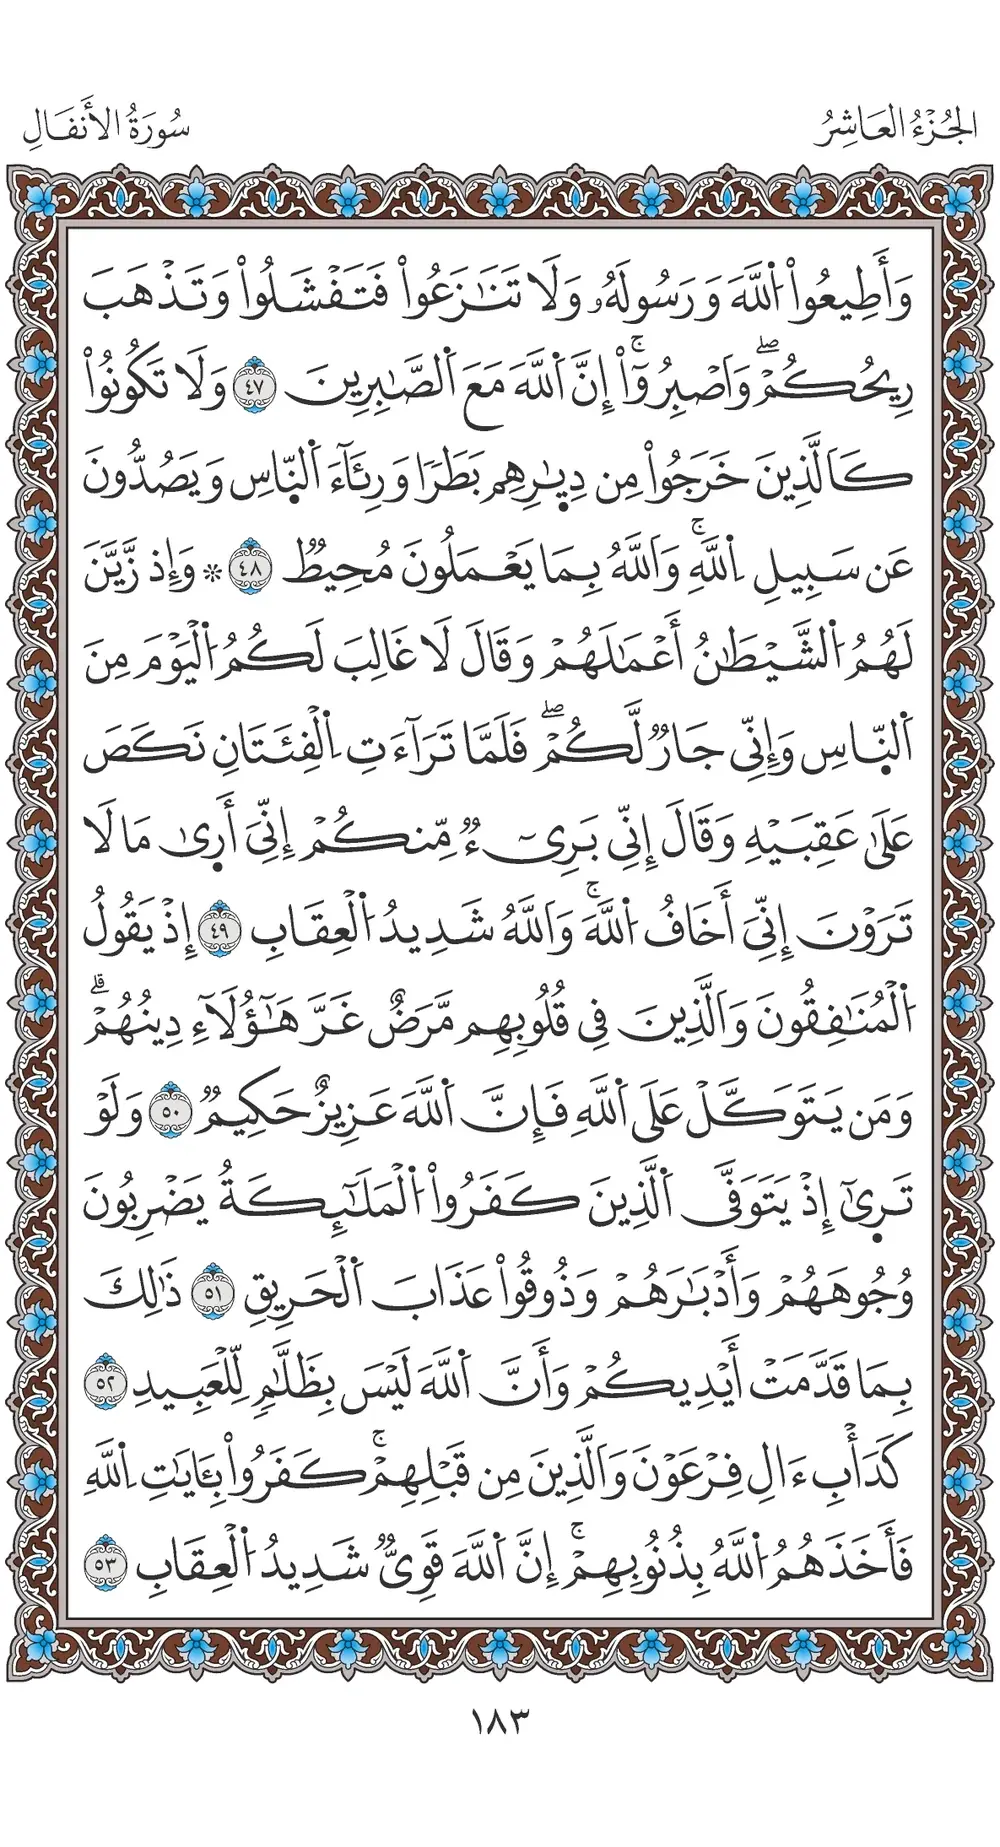 الجُزْءُ العَاشِرُ
سُورَةُ الأَنفَالِ
وَأَطِيعُواْ اُ۬للَّهَ وَرَسُولَهُۥ وَلَا تَنَٰزَعُواْ فَتَفْشَلُواْ وَتَذْهَبَ
رِيحُكُمْۖ وَاَصْبِرُوٓاْۚ إِنَّ اَ۬للَّهَ مَعَ اَ۬لصَّٰبِرِينَ ٤٧ وَلَا تَكُونُواْ
كَالذِينَ خَرَجُواْ مِن دِيٰ۪رِهِم بَطَرٗا وَرِئَآءَ اَ۬لنَّاسِ وَيَصُدُّونَ
عَن سَبِيلِ اِ۬للَّهِۚ وَاللَّهُ بِمَا يَعْمَلُونَ مُحِيطٞ ٤٨ ۞ وَإِذ زَّيَّنَ
لَهُمُ اُ۬لشَّيْطَٰنُ أَعْمَٰلَهُمْ وَقَالَ لَا غَالِبَ لَكُمُ اُ۬لْيَوْمَ مِنَ
اَ۬لنَّاسِ وَإِنِّي جَارٞ لَّكُمْۖ فَلَمَّا تَرَآءَتِ اِ۬لْفِئَتَانِ نَكَصَ
عَلَىٰ عَقِبَيْهِ وَقَالَ إِنِّي بَرِيٓءٞ مِّنكُمْ إِنِّيَ أَر۪ىٰ مَا لَا
تَرَوْنَ إِنِّيَ أَخَافُ اُ۬للَّهَۚ وَاللَّهُ شَدِيدُ اُ۬لْعِقَابِ ٤٩ إِذْ يَقُولُ
اُ۬لْمُنَٰفِقُونَ وَالذِينَ فِي قُلُوبِهِم مَّرَضٌ غَرَّ هَٰٓؤُلَآءِ دِينُهُمْۗ
وَمَن يَتَوَكَّلْ عَلَى اَ۬للَّهِ فَإِنَّ اَ۬للَّهَ عَزِيزٌ حَكِيمٞ ٥٠ وَلَوْ
تَر۪ىٰٓ إِذْ يَتَوَفَّى اَ۬لذِينَ كَفَرُواْ اُ۬لْمَلَٰٓئِكَةُ يَضْرِبُونَ
وُجُوهَهُمْ وَأَدْبَٰرَهُمْ وَذُوقُواْ عَذَابَ اَ۬لْحَرِيقِ ٥١ ذَٰلِكَ
بِمَا قَدَّمَتْ أَيْدِيكُمْ وَأَنَّ اَ۬للَّهَ لَيْسَ بِظَلَّٰمٖ لِّلْعَبِيدِ ٥٢
كَدَأْبِ ءَالِ فِرْعَوْنَ وَالذِينَ مِن قَبْلِهِمْۚ كَفَرُواْ بِـَٔايَٰتِ اِ۬للَّهِ
فَأَخَذَهُمُ اُ۬للَّهُ بِذُنُوبِهِمْۚ إِنَّ اَ۬للَّهَ قَوِيّٞ شَدِيدُ اُ۬لْعِقَابِ ٥٣
١٨٣